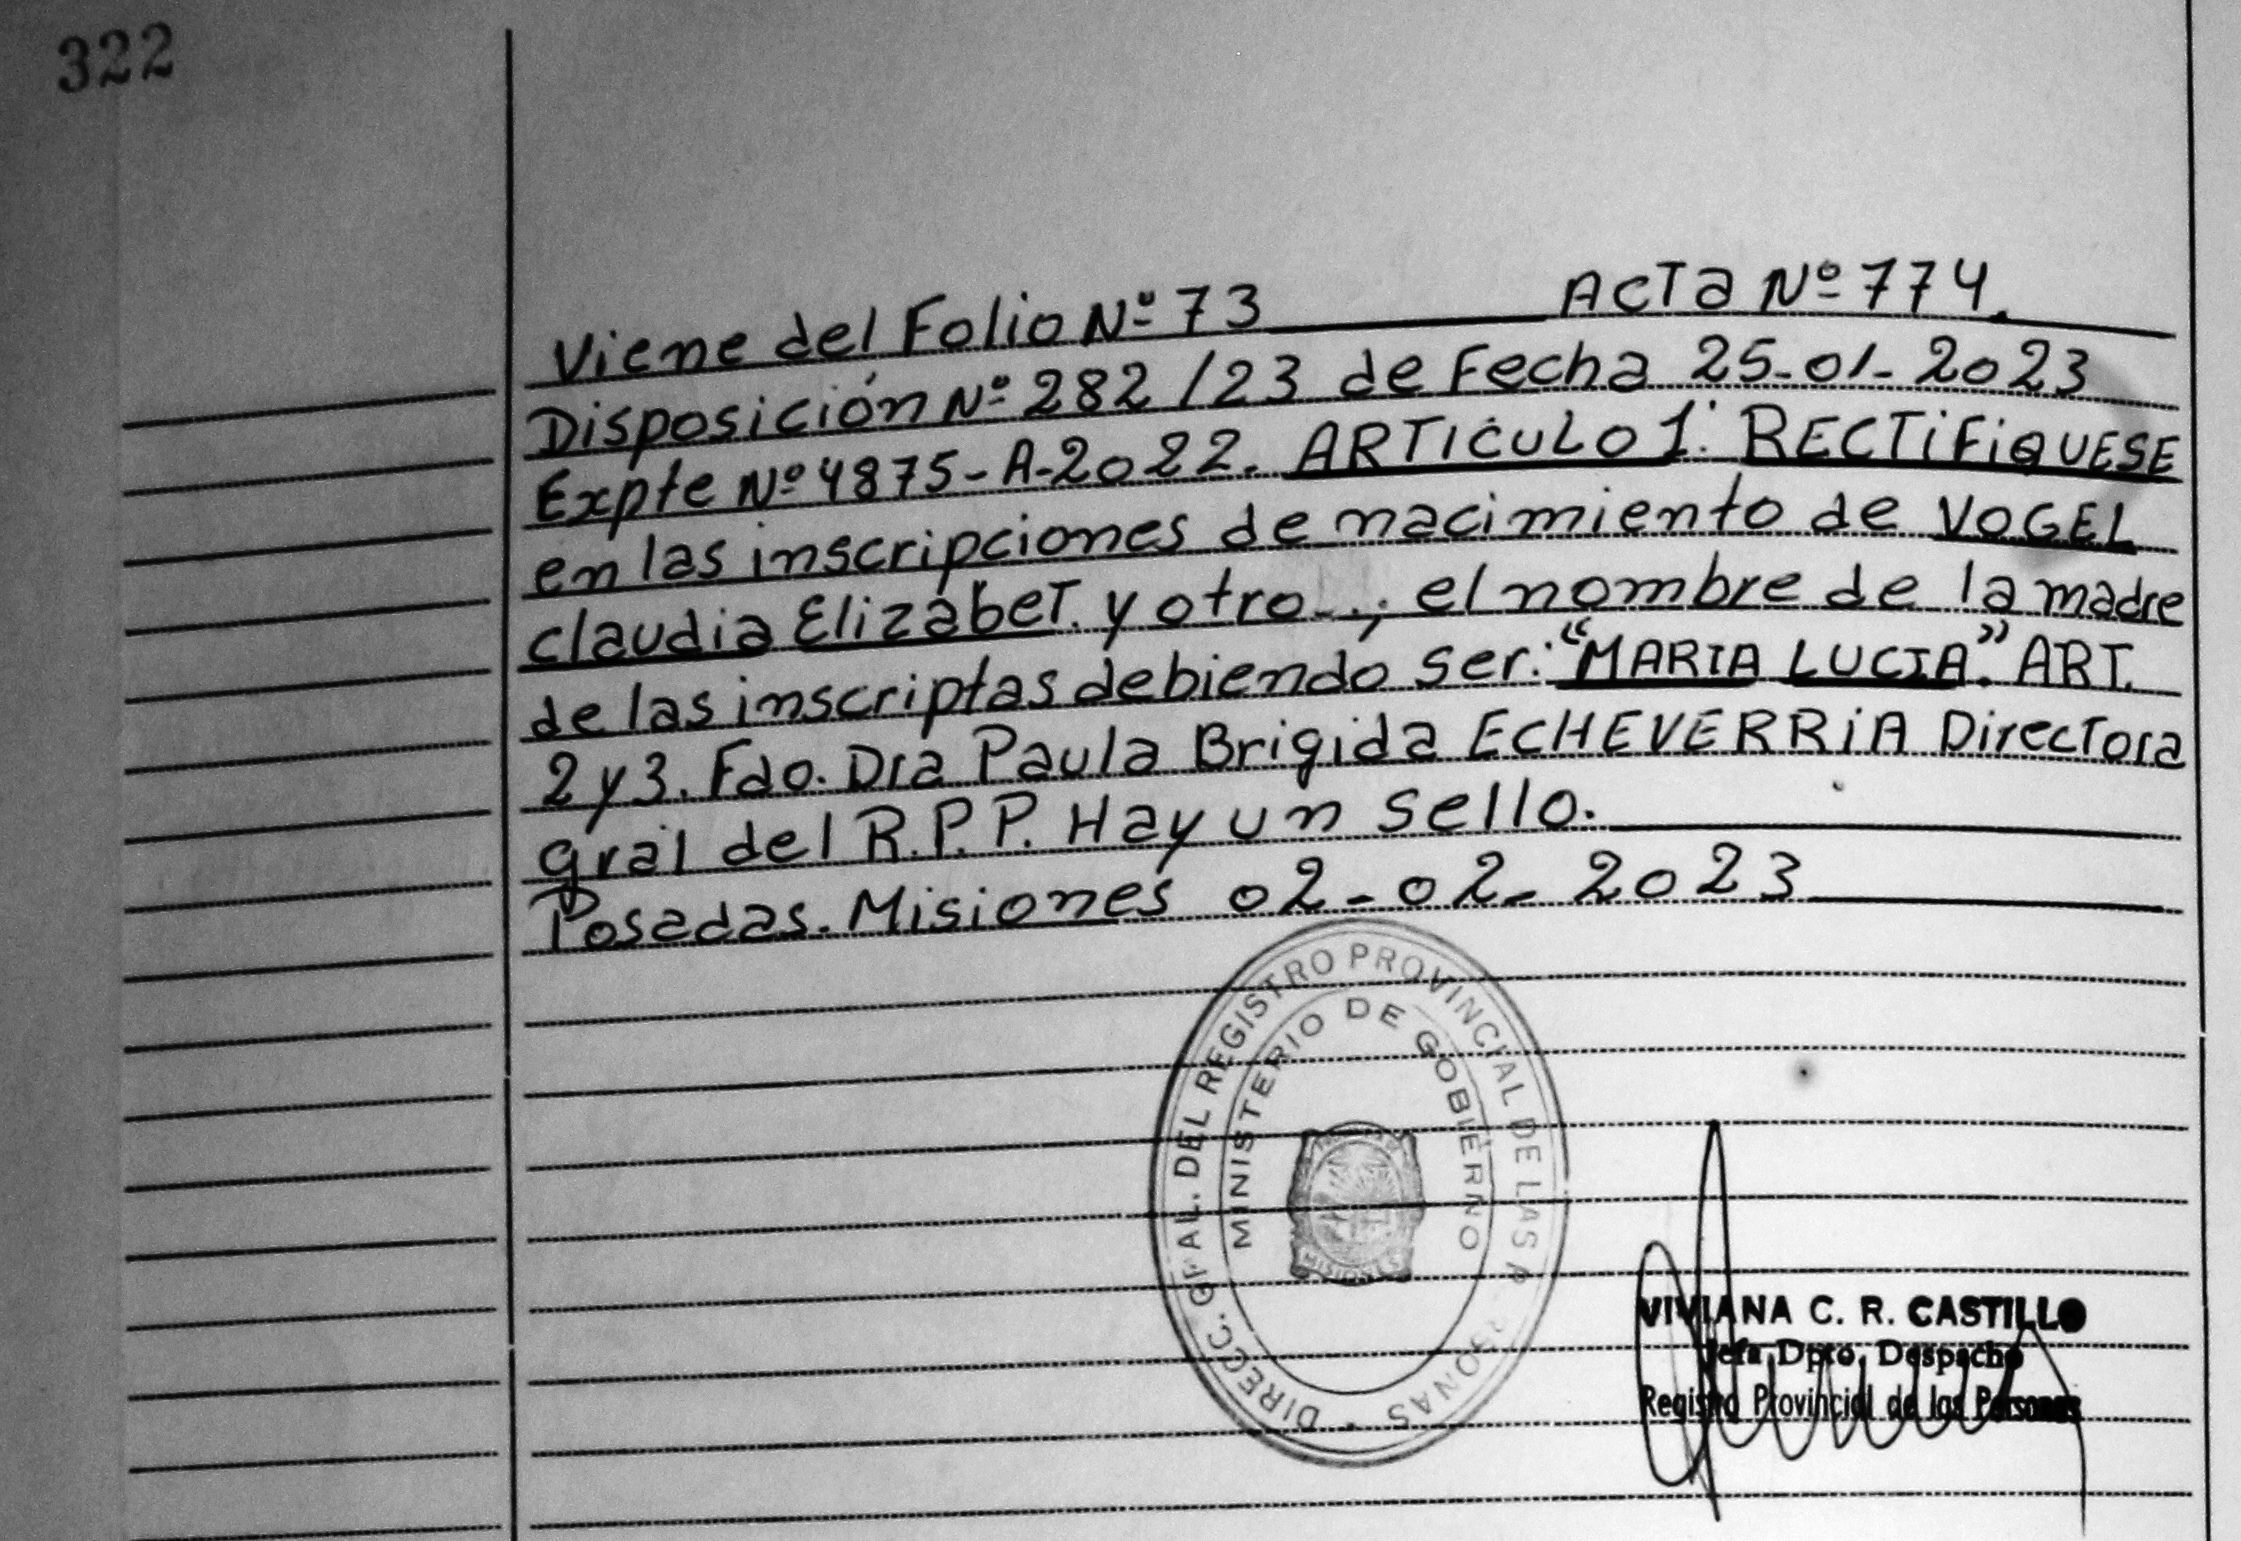 322
Viene del Folio Nº 73 ACTA Nº 774.
Disposición Nº 282/23 de Fecha 25-01-2023
Expte Nº 4875-A-2022. ARTICULO 1: RECTIFIQUESE
en las inscripciones de nacimiento de VOGEL
Claudia Elizabet. y otro...; el nombre de la madre
de las inscriptas debiendo ser: "MARIA LUCIA". ART.
2 y 3. Fdo. Dra Paula Brigida ECHEVERRIA Directora
gral del R.P.P. Hay un sello.
Posadas. Misiones 02-02-2023
DIRECC. GRAL. DEL REGISTRO PROVINCIAL DE LAS PERSONAS
MINISTERIO DE GOBIERNO
MISIONES
VIVIANA C. R. CASTILLO
Jefa Dpto. Despacho
Registro Provincial de las Personas